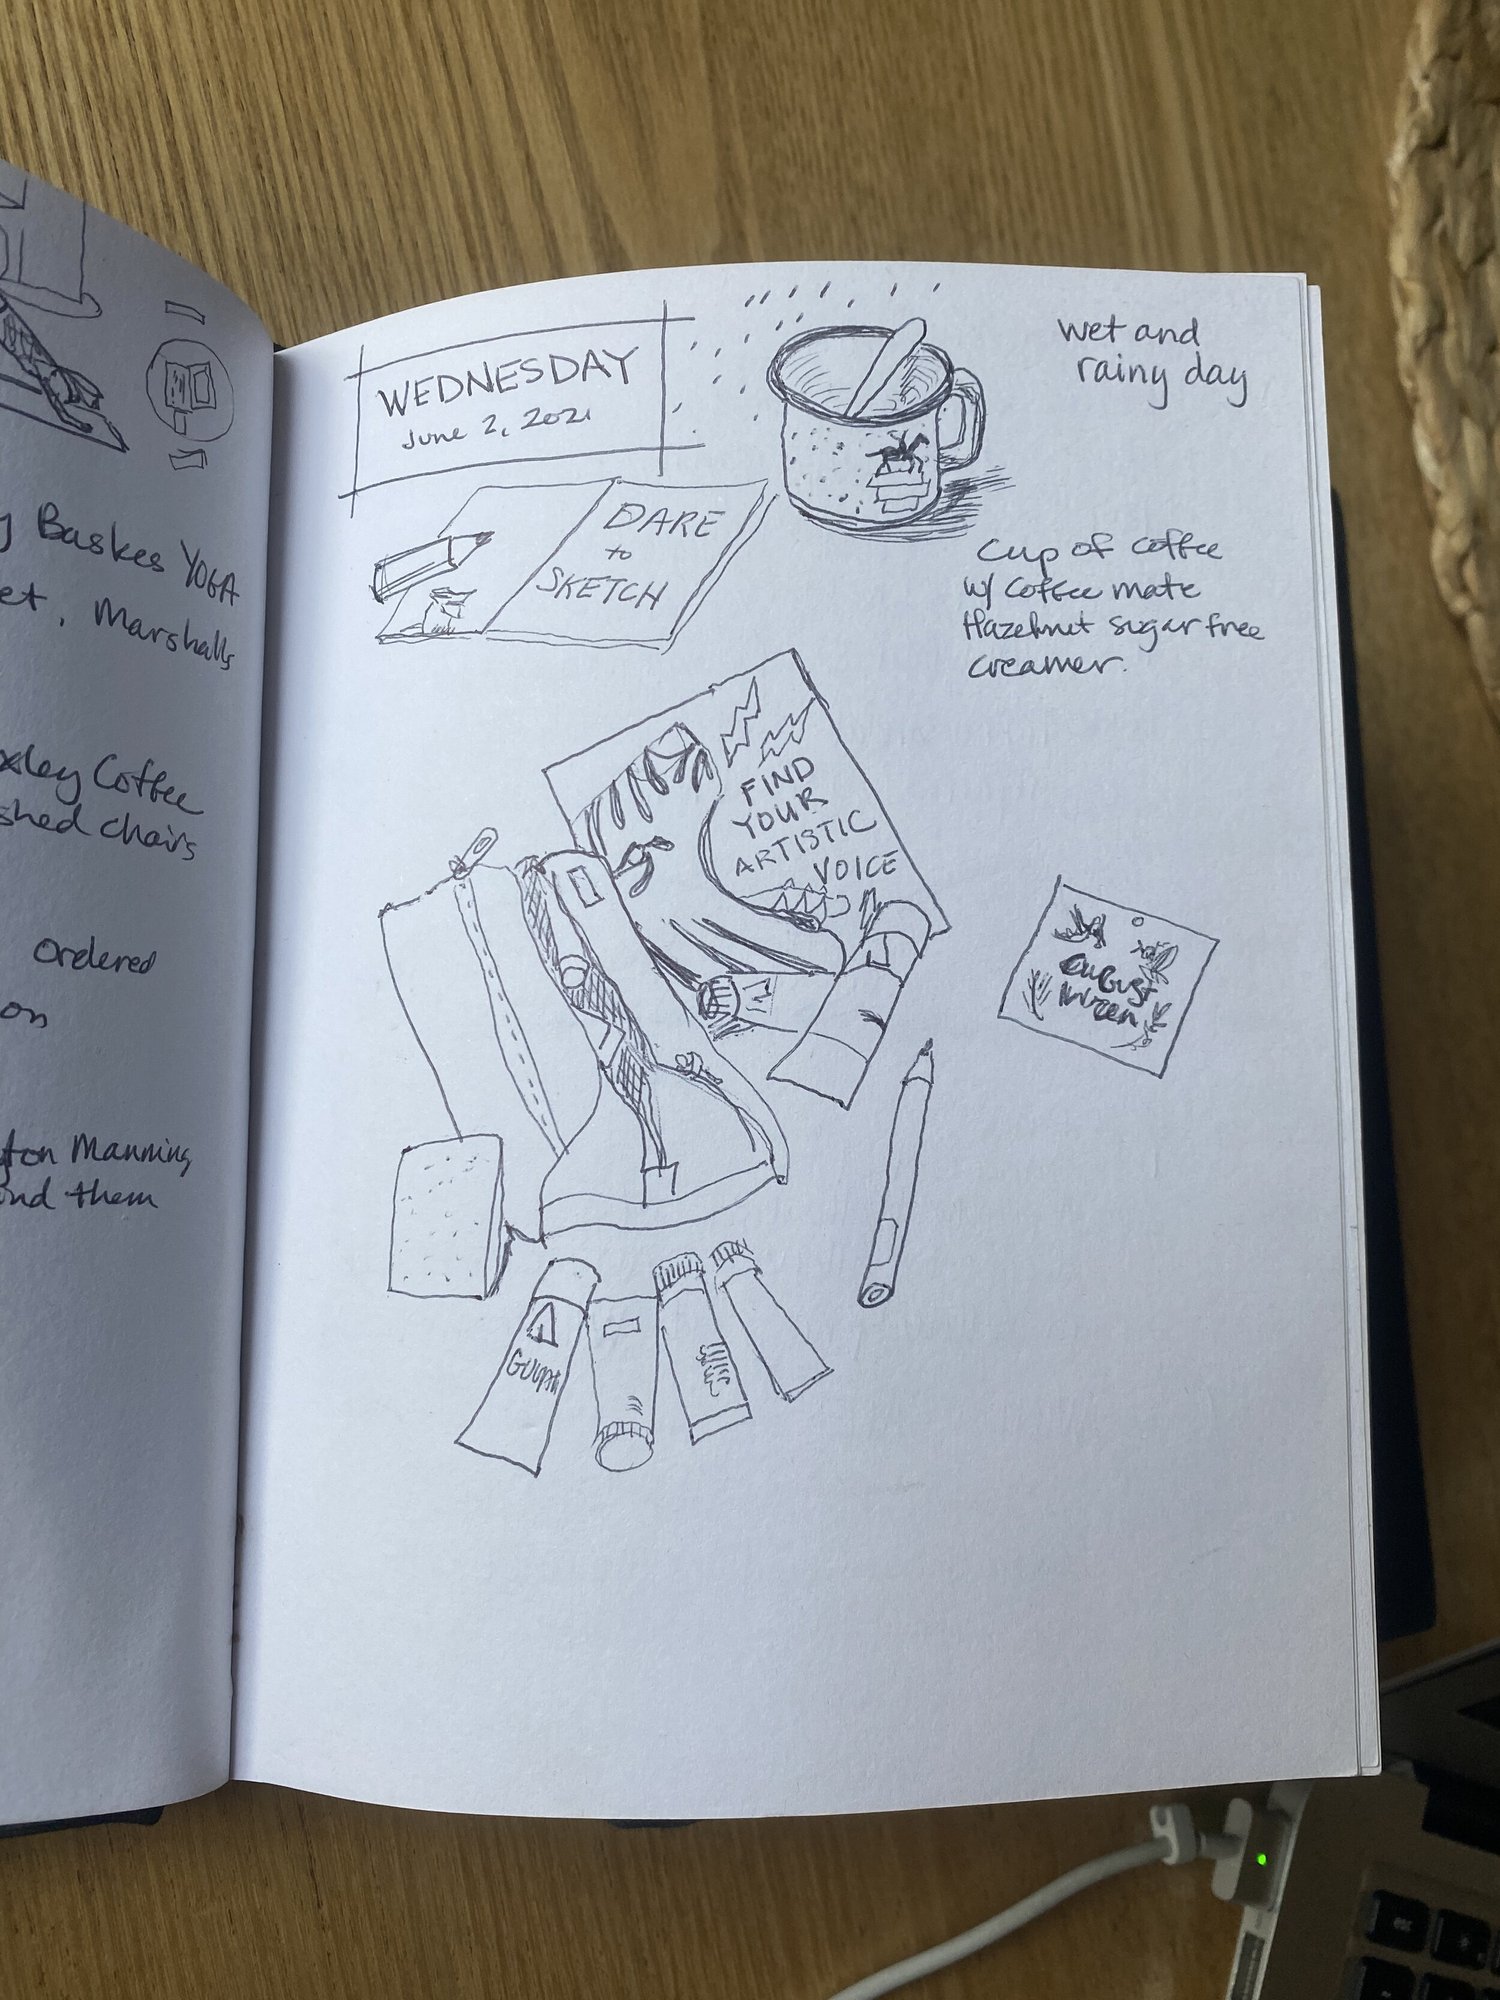 Baskes YOGA
et, Marshalls
xley Coffee
shed chairs
ordered
on
ton Manning
ond them
WEDNESDAY
June 2, 2021
wet and
rainy day
DARE
to
SKETCH
Cup of coffee
w/ Coffee mate
Hazelnut sugar free
creamer.
FIND
YOUR
ARTISTIC
VOICE
august
wren